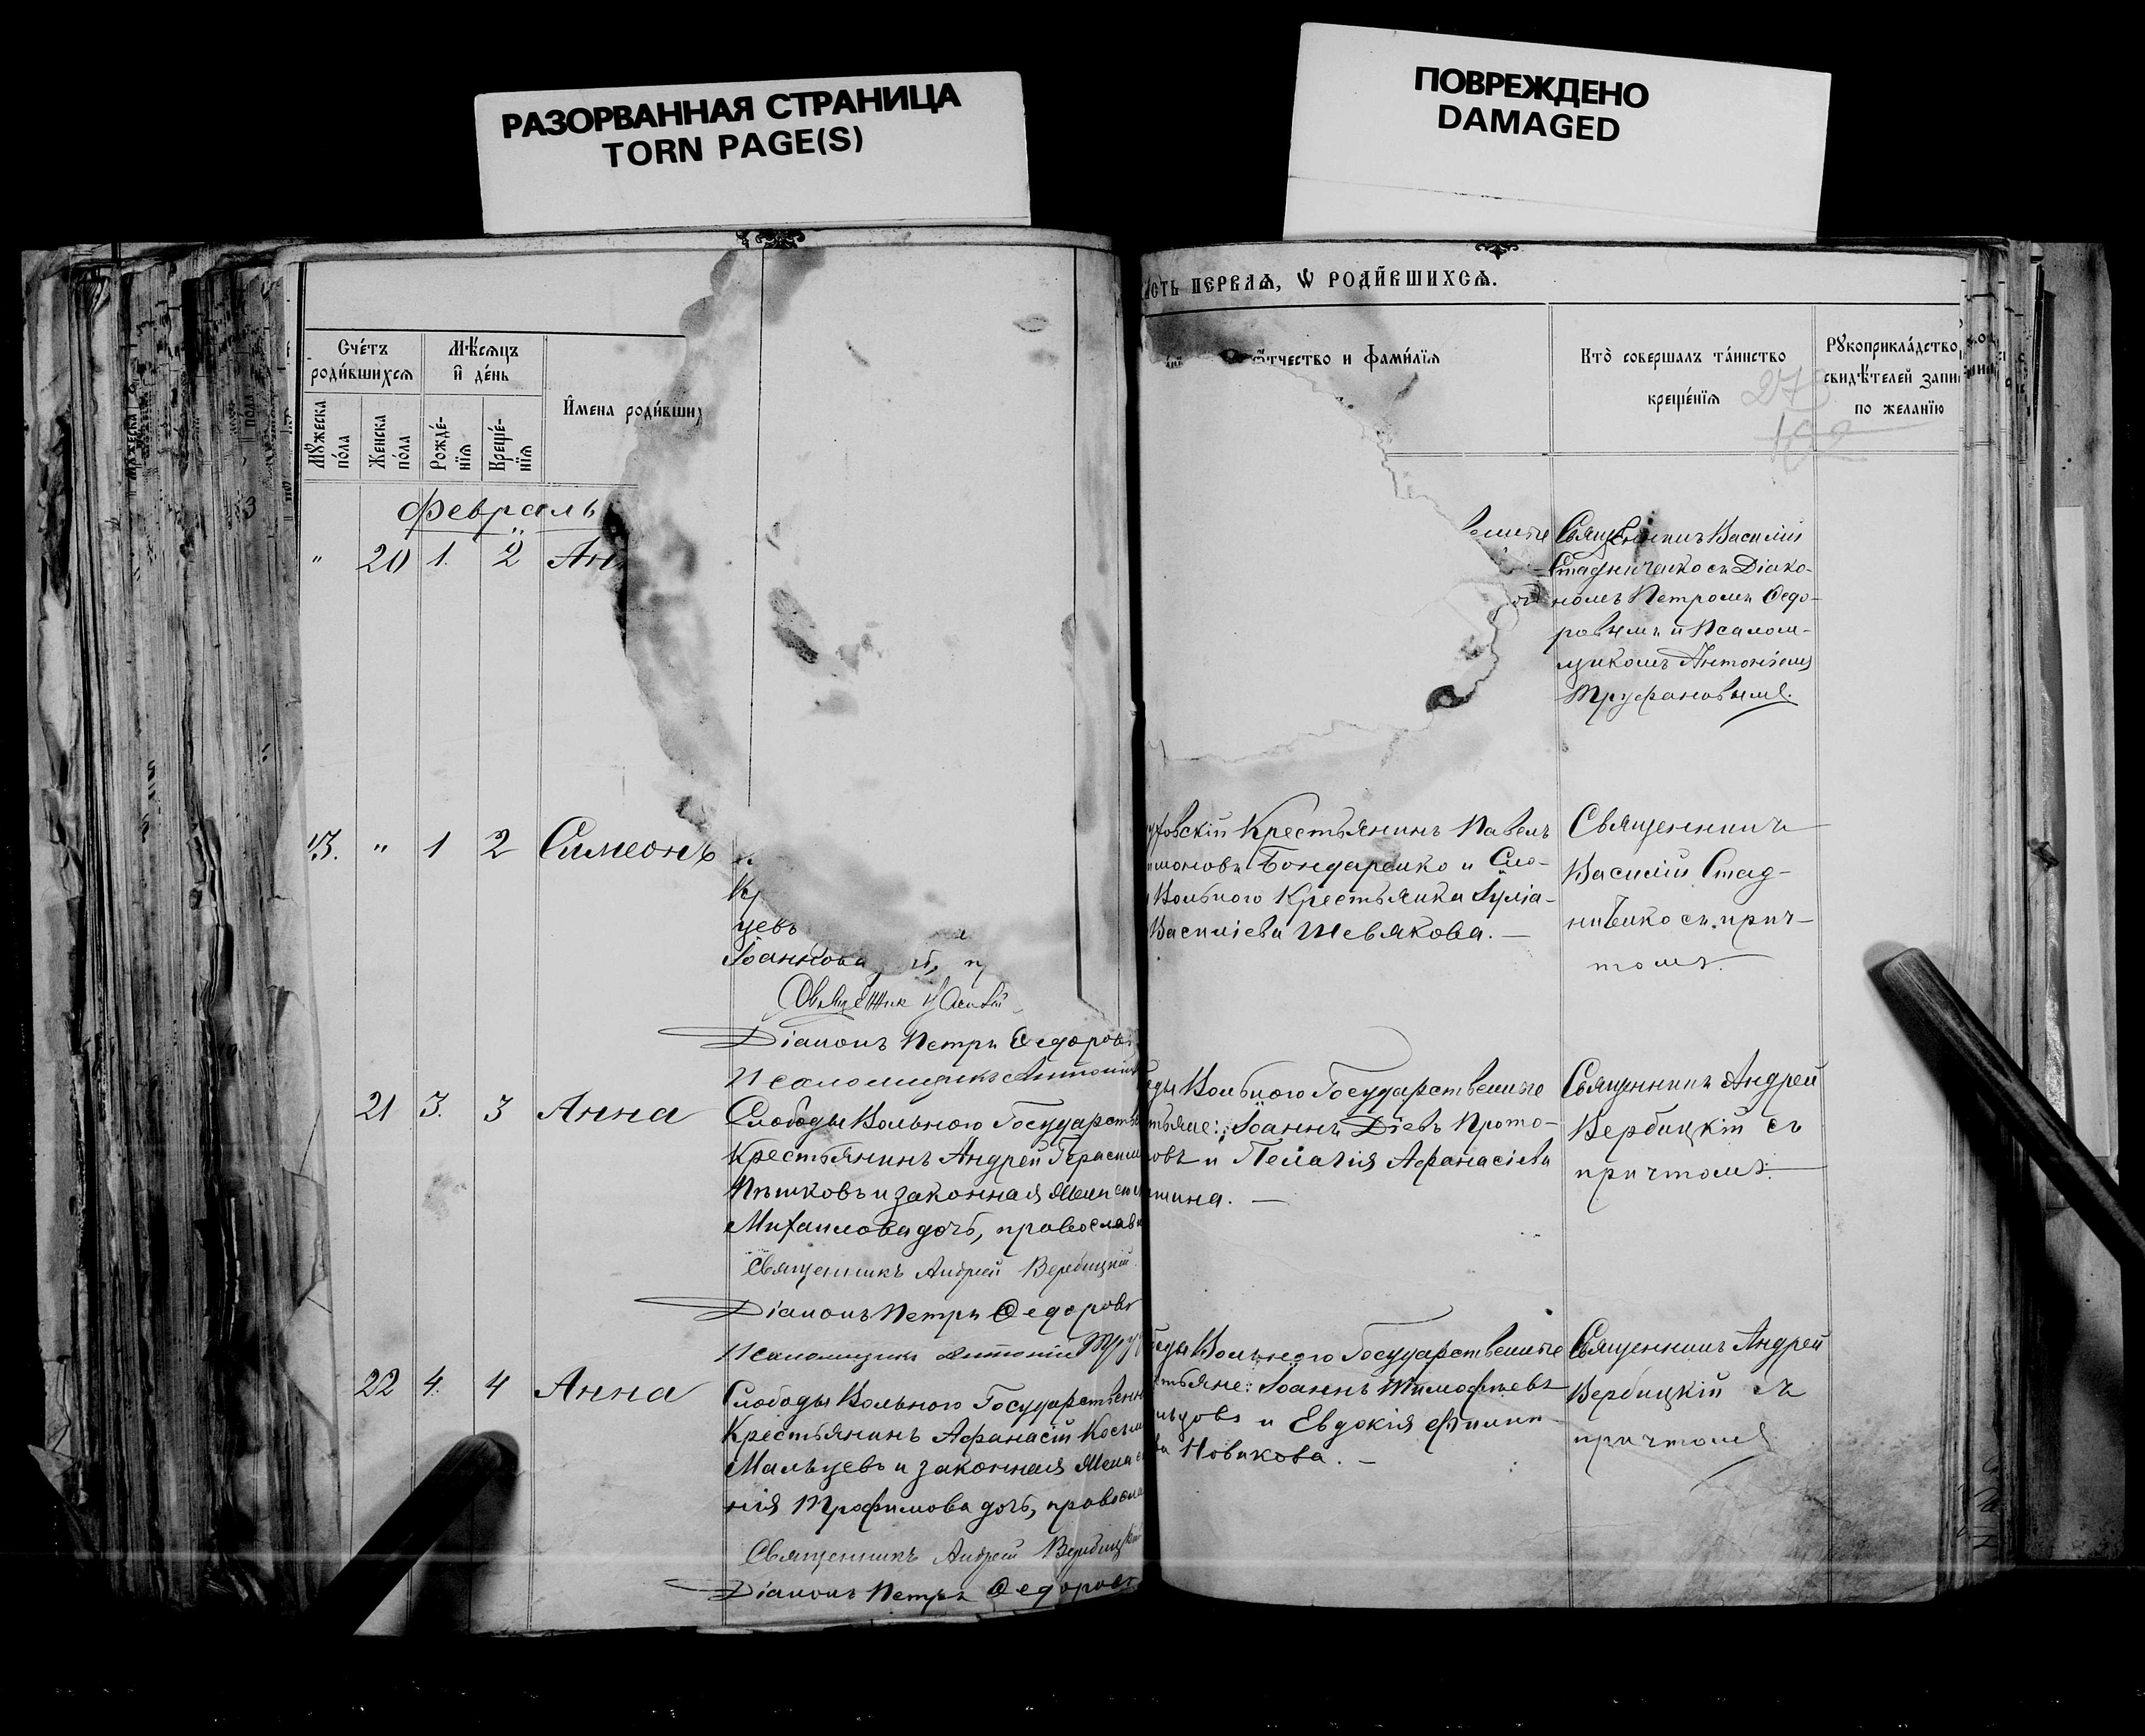 РАЗОРВАННАЯ СТРАНИЦА
TORN PAGE(S)
ПОВРЕЖДЕНО
DAMAGED
Счéтъ
роди́вшихсѧ
Мѣ́сѧцъ
и҆ де́нь
И҆мена роди́вших
Мꙋ́жеска
по́ла
Женска
по́ла
Рожде́-
нїѧ
Креще́-
нїѧ
Февраль
" 20 1. 2 Ан
13. " 1 2 Симеонъ
цевъ
Іоаннова
Священник Васили
Діаконъ Петръ Ѳедоровъ
Псаломщикъ Антоній
21 3. 3 Анна
Слободы Вольного Государств
Крестьянинъ Андрей Герасим
Пѣшковъ и законная жена
Михаилова дочь, православ
Священникъ Андрей Вербицкій
Діаконъ Петръ Ѳедоровъ
Псаломщикъ Антоній Тру
22 4. 4 Анна
Слободы Вольного Государственн
Крестьянинъ Афанасій Косьм
Мальцевъ и законная жена
нія Трофимова дочь, правосла
Священникъ Андрей Вербицкій
Діаконъ Петръ Ѳедоровъ
сть первая, ѿ роди́вшихсѧ.
ѻ҆́тчество и фами́лїя
Кто̀ соверша́лъ та́инство
креще́нїѧ
Рꙋкоприкла́дство
свидѣ́телей запи
по жела́нїю
Священникъ Василій
Стадниченко съ Діако-
номъ Петромъ Ѳедо-
ровымъ и Псалом-
щикомъ Антоніемъ
Труфановымъ.
овскій Крестьянинъ Павелъ
моновъ Бондаренко и Сло-
Вольного Крестьянка Іуліа-
Василіева Шевякова. —
Священникъ
Василій Стад-
ниченко съ прич-
томъ.
ды Вольного Государственные
тьяне: Іоаннъ Діевъ Прото-
овъ и Пелагія Афанасіева
шина. —
Священникъ Андрей
Вербицкій съ
причтомъ.
оды Вольного Государственные
стьяне: Іоаннъ Тимофѣевъ
и Евдокія Филип-
ва Новикова. —
Священникъ Андрей
Вербицкій съ
причтомъ